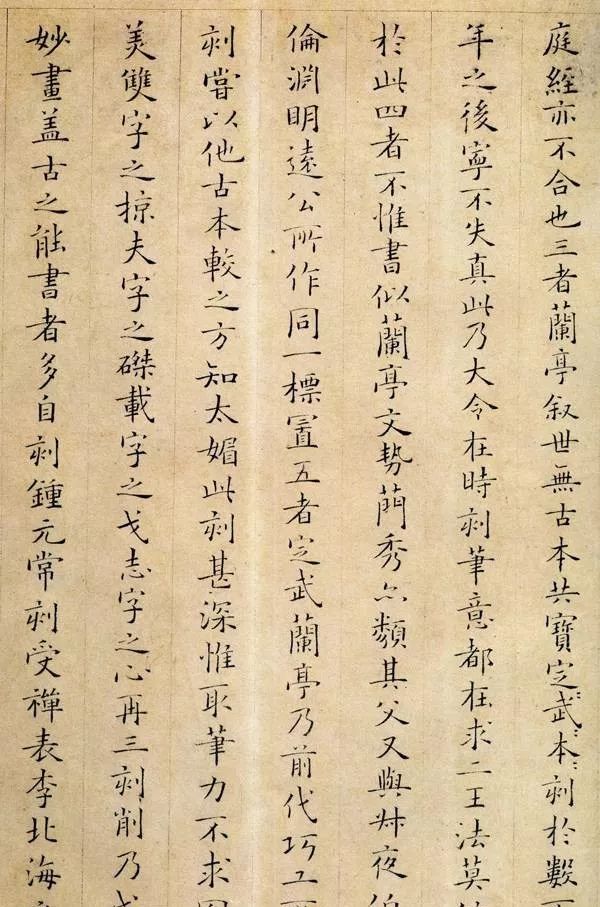 庭經亦不合也三者蘭亭叙世無古本共寶定武本刻於數
年之後寧不失真此乃大令在時刻筆意都在求二王法莫
於此四者不惟書似蘭亭文勢蕳秀亦類其父又與叔夜
倫淵明遠公所作同一標置五者定武蘭亭乃前代巧工
刻嘗以他古本較之方知太媚此刻甚深惟取筆力不求
美雙字之掠夫字之磔載字之戈志字之心再三刻削乃
妙畫盖古之能書者多自刻鍾元常刻受禪表李北海